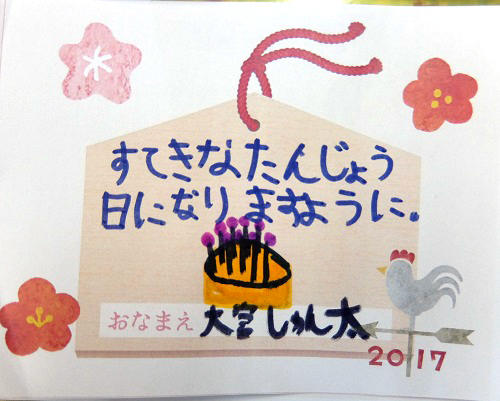 すてきなたんじょう
日になりますように。
おなまえ 大宮しゅん太
2017